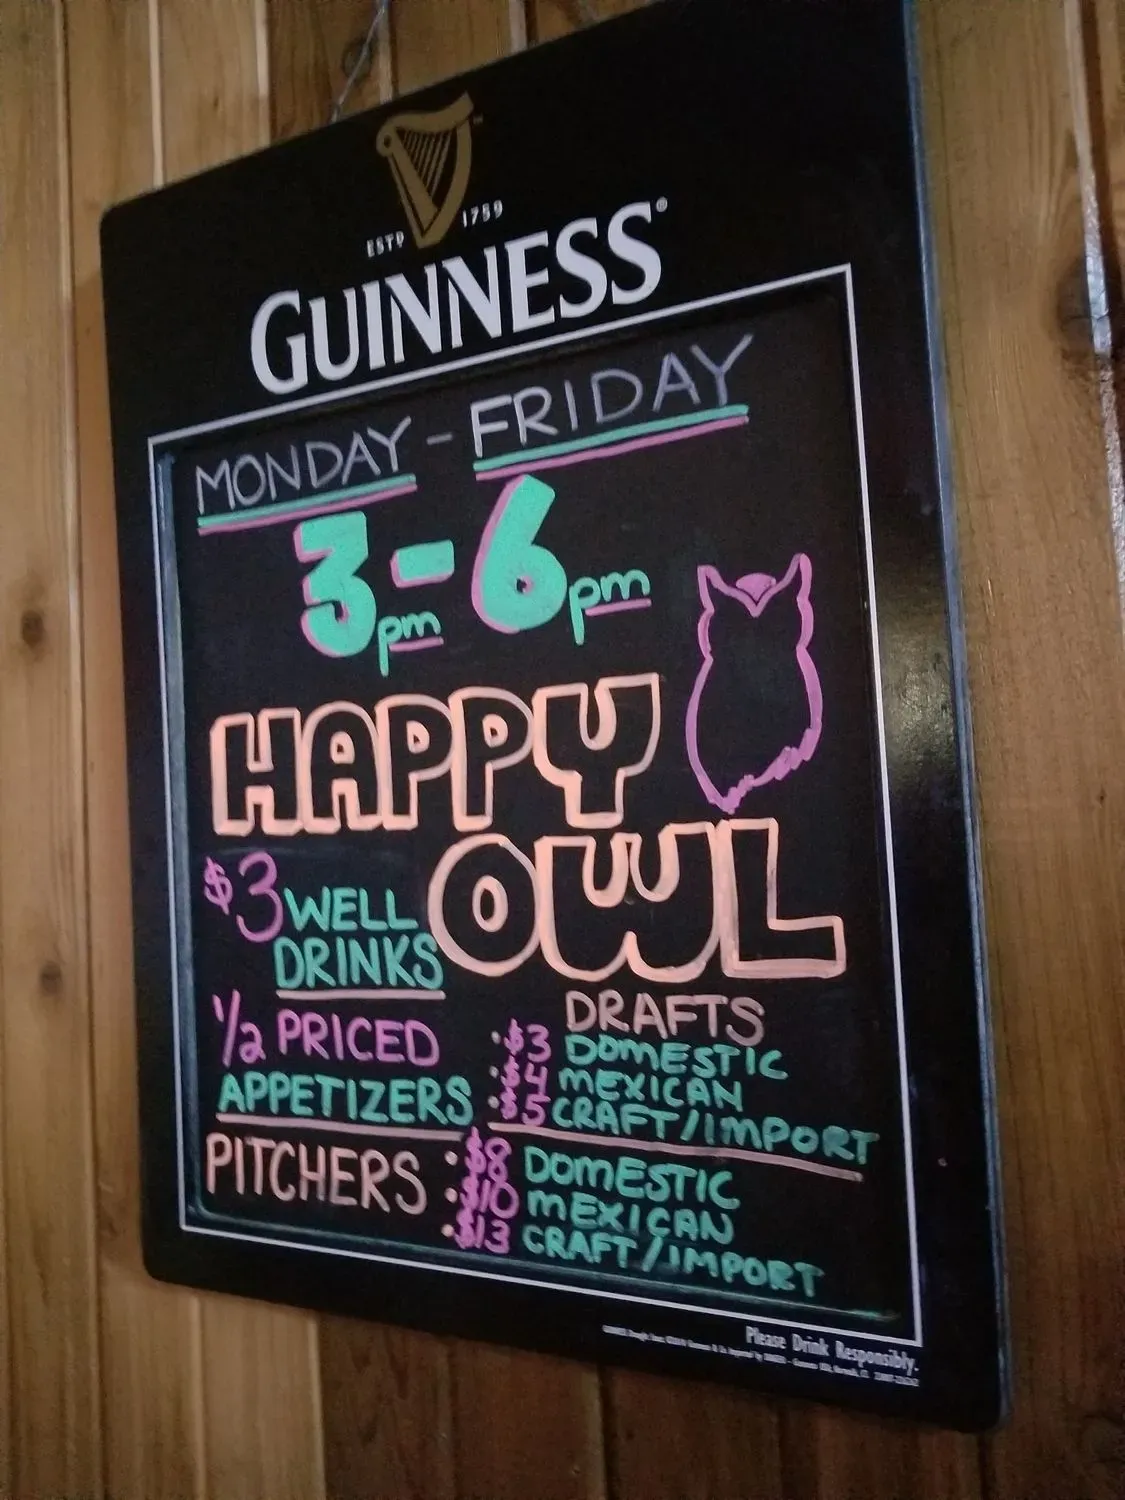 ESTD 1759
GUINNESS®
MONDAY - FRIDAY
3pm - 6pm
HAPPY
OWL
$3 WELL
DRINKS
1/2 PRICED
APPETIZERS
DRAFTS
· $3 DOMESTIC
· $4 MEXICAN
· $5 CRAFT/IMPORT
PITCHERS
· $8 DOMESTIC
· $10 MEXICAN
· $13 CRAFT/IMPORT
Please Drink Responsibly.